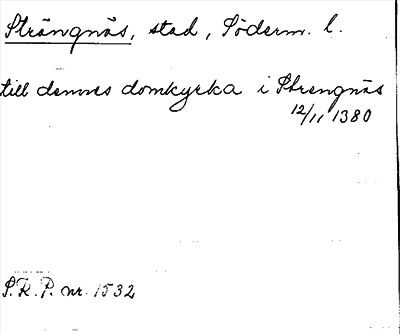 Strängnäs, stad, Söderm. l.
till dennes domkyrka i Strengnäs
12/11 1380
S.R.P. nr. 1532